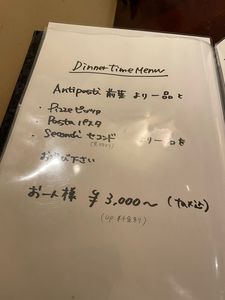 Dinner Time Menu
Antipasti 前菜 より一品と
・ Pizza ピッツァ
・ Pasta パスタ
・ Secondi セコンド より一品を
お選び下さい
お一人様 ¥3,000〜 (tax込)
(up 料金あり)